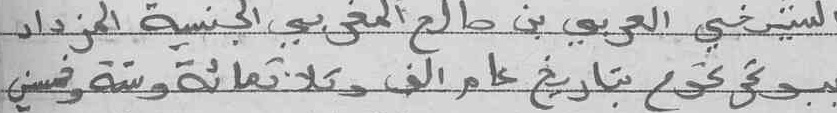 السيرغيني العربي بن صالح المغربي الجنسية المزداد
بتاريخ عام الف وثلاثمائة وستة وخمسين